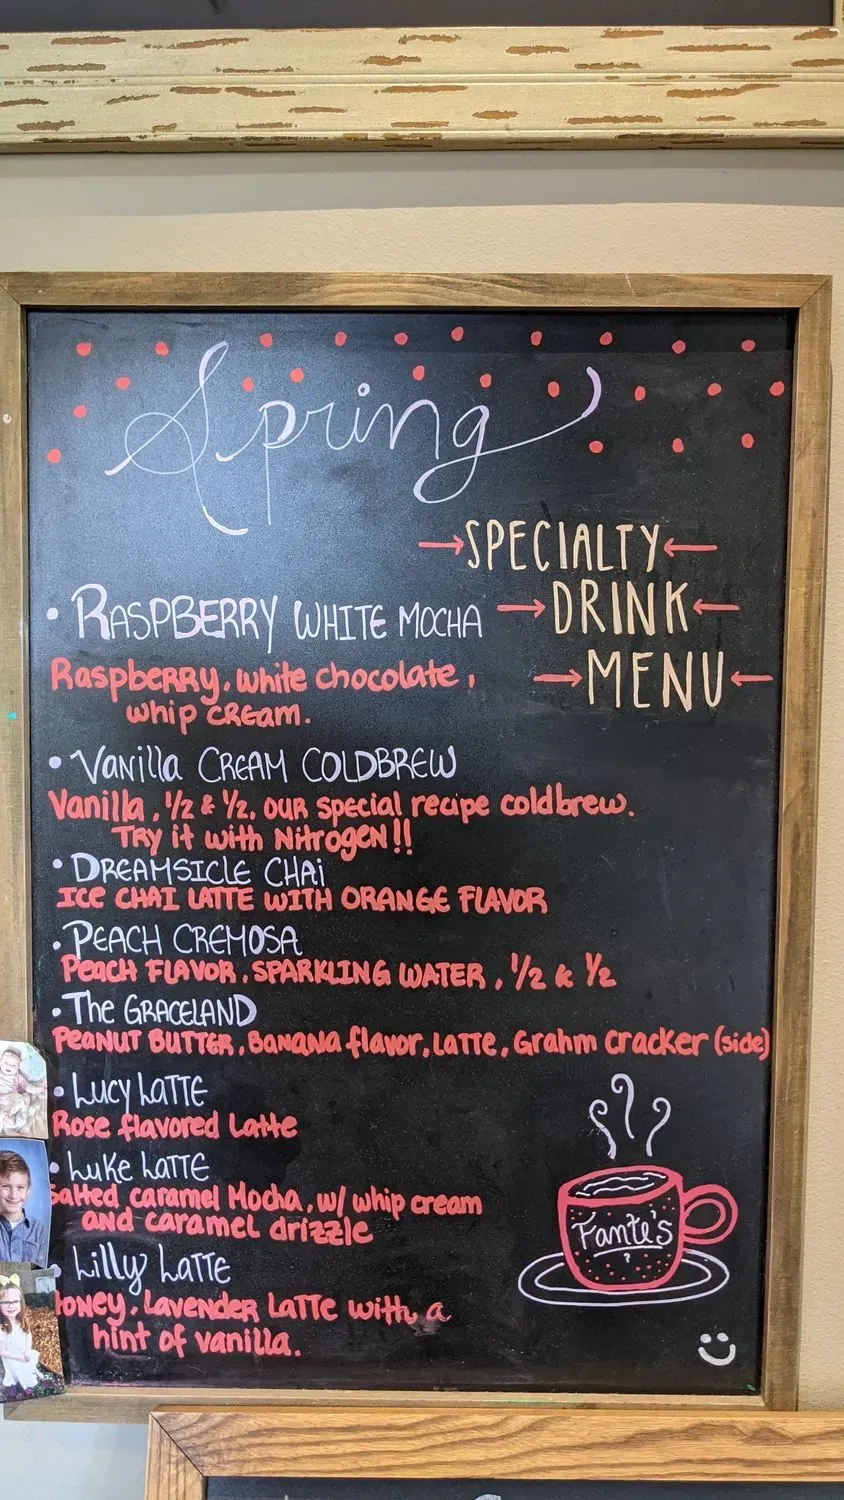 Spring
SPECIALTY
DRINK
MENU
• RASPBERRY WHITE MOCHA
Raspberry, white chocolate,
whip cream.
• Vanilla CREAM COLDBREW
Vanilla, 1/2 & 1/2, our special recipe coldbrew.
Try it with Nitrogen!!
• DREAMSICLE CHAi
ICE CHAI LATTE WITH ORANGE FLAVOR
• PEACH CREMOSA
Peach FLAVOR, SPARKLING WATER, 1/2 & 1/2
• The GRACELAND
Peanut Butter, Banana flavor, Latte, Grahm Cracker (side)
• Lucy Latte
Rose flavored Latte
• Luke Latte
Salted caramel Mocha, w/ whip cream
and caramel drizzle
• Lilly Latte
Honey, Lavender Latte with a
hint of vanilla.
Fante's